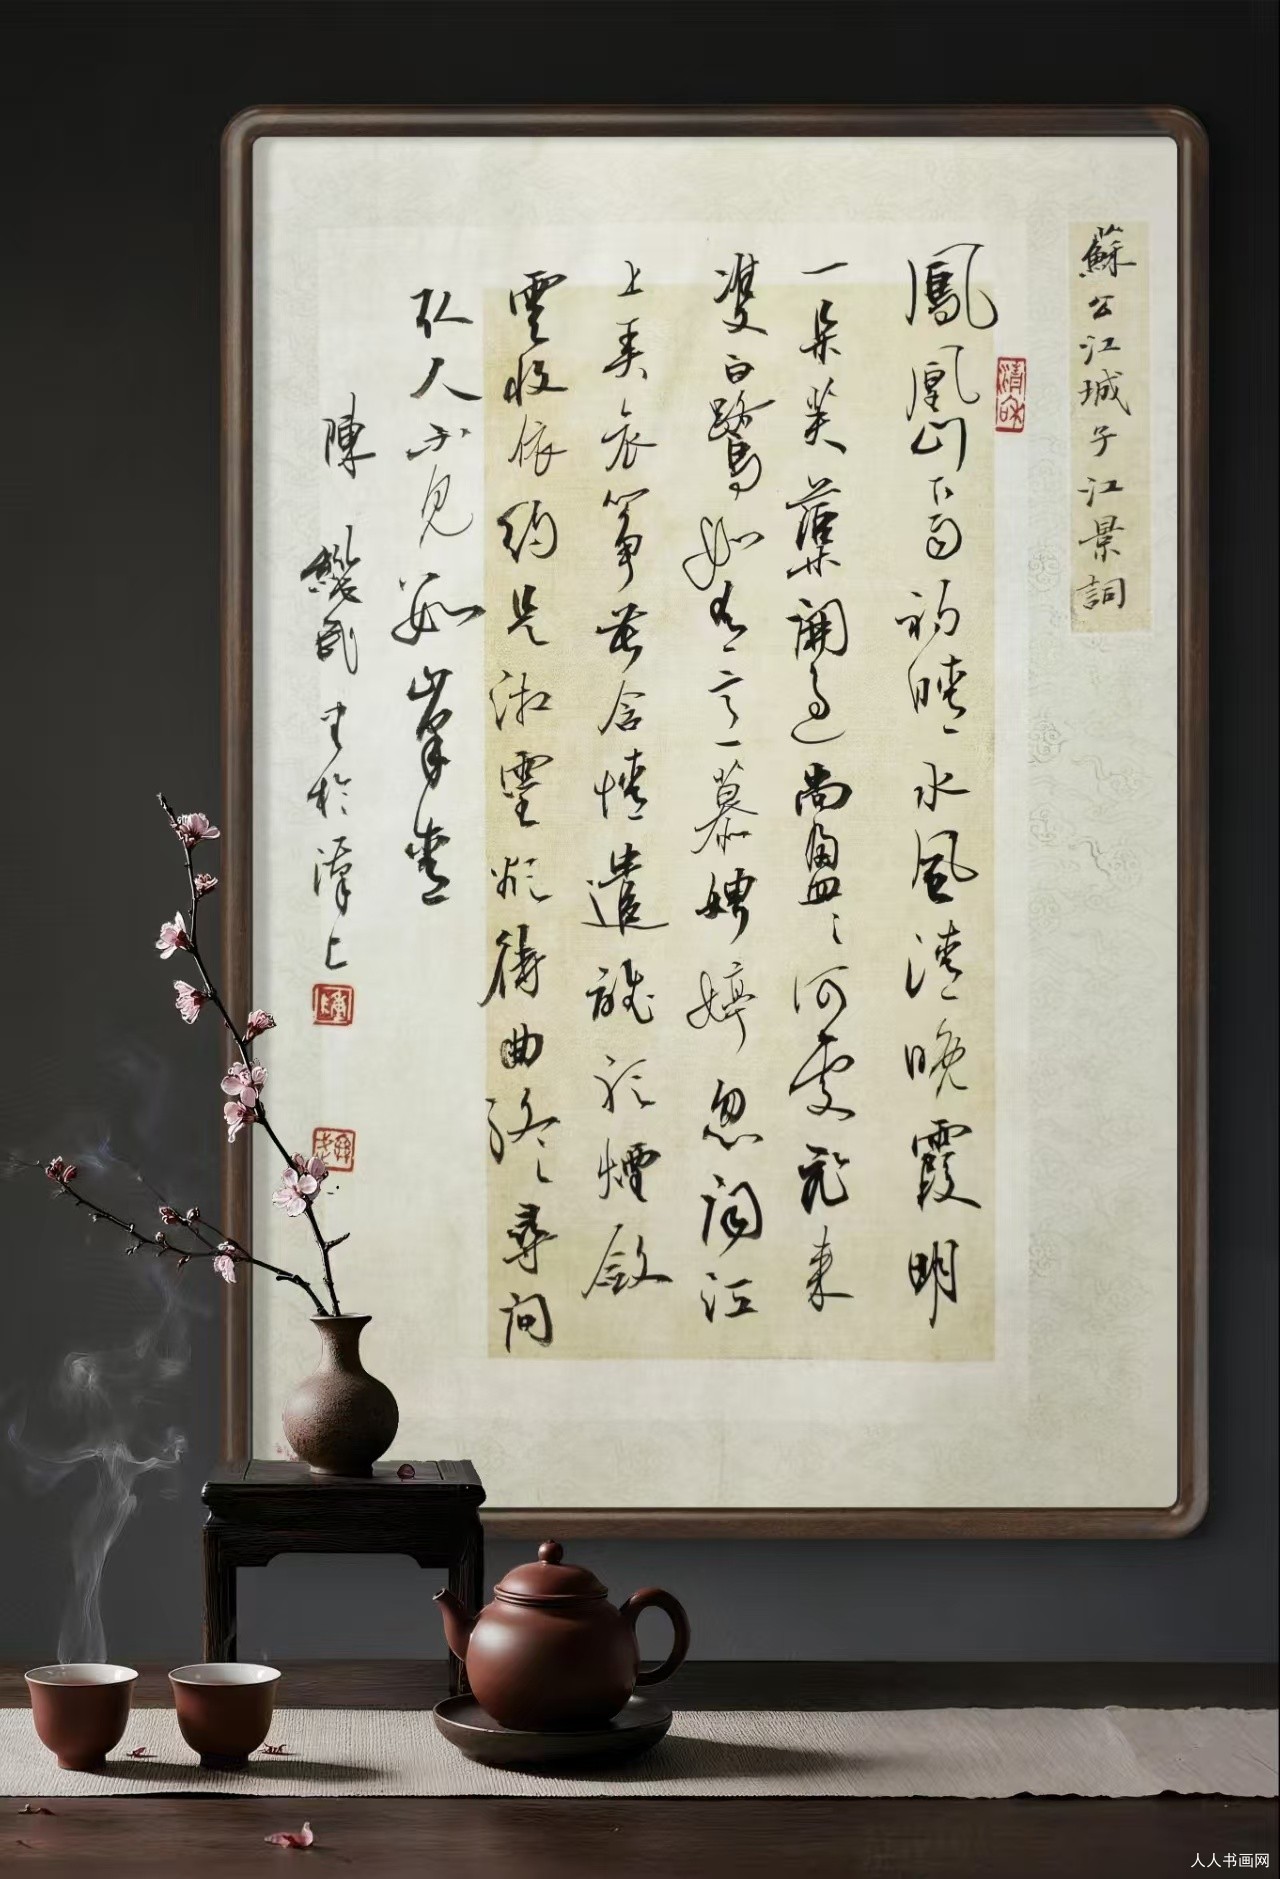 蘇公江城子江景詞
鳳凰山下雨初晴水風清晚霞明
一朵芙蕖開過尚盈〻何處飛來
雙白鷺如有意慕娉婷忽聞江
上弄哀箏苦含情遣誰聽煙斂
雲收依約是湘靈欲待曲終尋問
取人不見數峰青
陳 武书於漳上
人人书画网